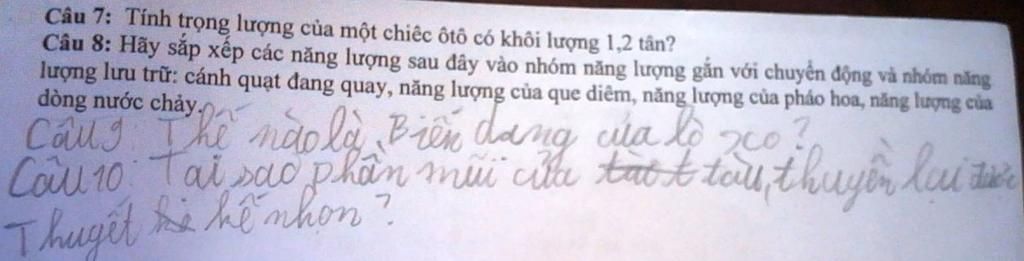 Câu 7: Tính trọng lượng của một chiếc ôtô có khối lượng 1,2 tấn?
Câu 8: Hãy sắp xếp các năng lượng sau đây vào nhóm năng lượng gắn với chuyển động và nhóm năng
lượng lưu trữ: cánh quạt đang quay, năng lượng của que diêm, năng lượng của pháo hoa, năng lượng của
dòng nước chảy.
Câu 9 Thế nào là Biến dạng của lò xo?
Câu 10: Tại sao phần mũi của tàu, thuyền lại được
Thuyết kế nhọn?